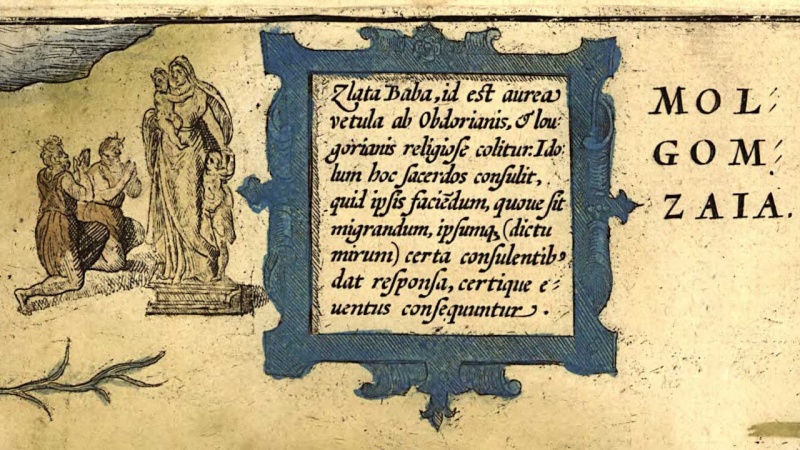 Zlata Baba, id est aurea
vetula ab Obdorianis, & Iou⸗
gorianis religiosè colitur. Ido⸗
lum hoc sacerdos consulit,
quid ipsis faciẽdum, quoue sit
migrandum, ipsumq; (dictu
mirum) certa consulentibꝰ
dat responsa, certique e⸗
uentus consequuntur.
MOL⸗
GOM⸗
ZAIA.